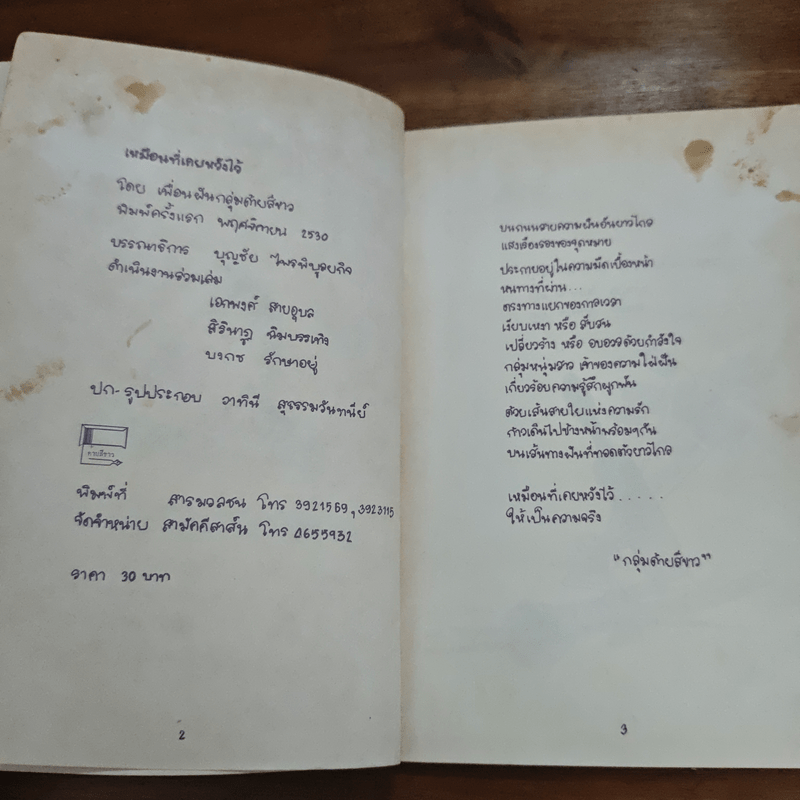 เหมือนที่เคยหวังไว้
โดย เพื่อนฝันกลุ่มด้ายสีขาว
พิมพ์ครั้งแรก พฤศจิกายน 2530
บรรณาธิการ บุญชัย ไพรพิบูลยกิจ
ดำเนินงานร่วมเล่ม
เอกพงศ์ สายอุบล
สิรินาฏ พิมบรรเทิง
บงกช รักษาอยู่
ปก-รูปประกอบ วาทินี สุธรรมวันทนีย์
ด้ายสีขาว
พิมพ์ที่ สารมวลชน โทร 3921569, 3923115
จัดจำหน่าย สามัคคีสาส์น โทร 4655932
ราคา 30 บาท
2
บนถนนสายความฝันอันยาวไกล
แสงเรืองรองของจุดหมาย
ประกายอยู่ในความมืดเบื้องหน้า
หนทางที่ผ่าน...
ตรงทางแยกของกาลเวลา
เงียบเหงา หรือ สับสน
เปลี่ยวร้าง หรือ อบอวลด้วยกำลังใจ
กลุ่มหนุ่มสาว เจ้าของความใฝ่ฝัน
เกี่ยวร้อยความรู้สึกผูกพัน
ด้วยเส้นสายใยแห่งความรัก
ก้าวเดินไปข้างหน้าพร้อมๆกัน
บนเส้นทางฝันที่ทอดตัวยาวไกล
เหมือนที่เคยหวังไว้.....
ให้เป็นความจริง
"กลุ่มด้ายสีขาว"
3